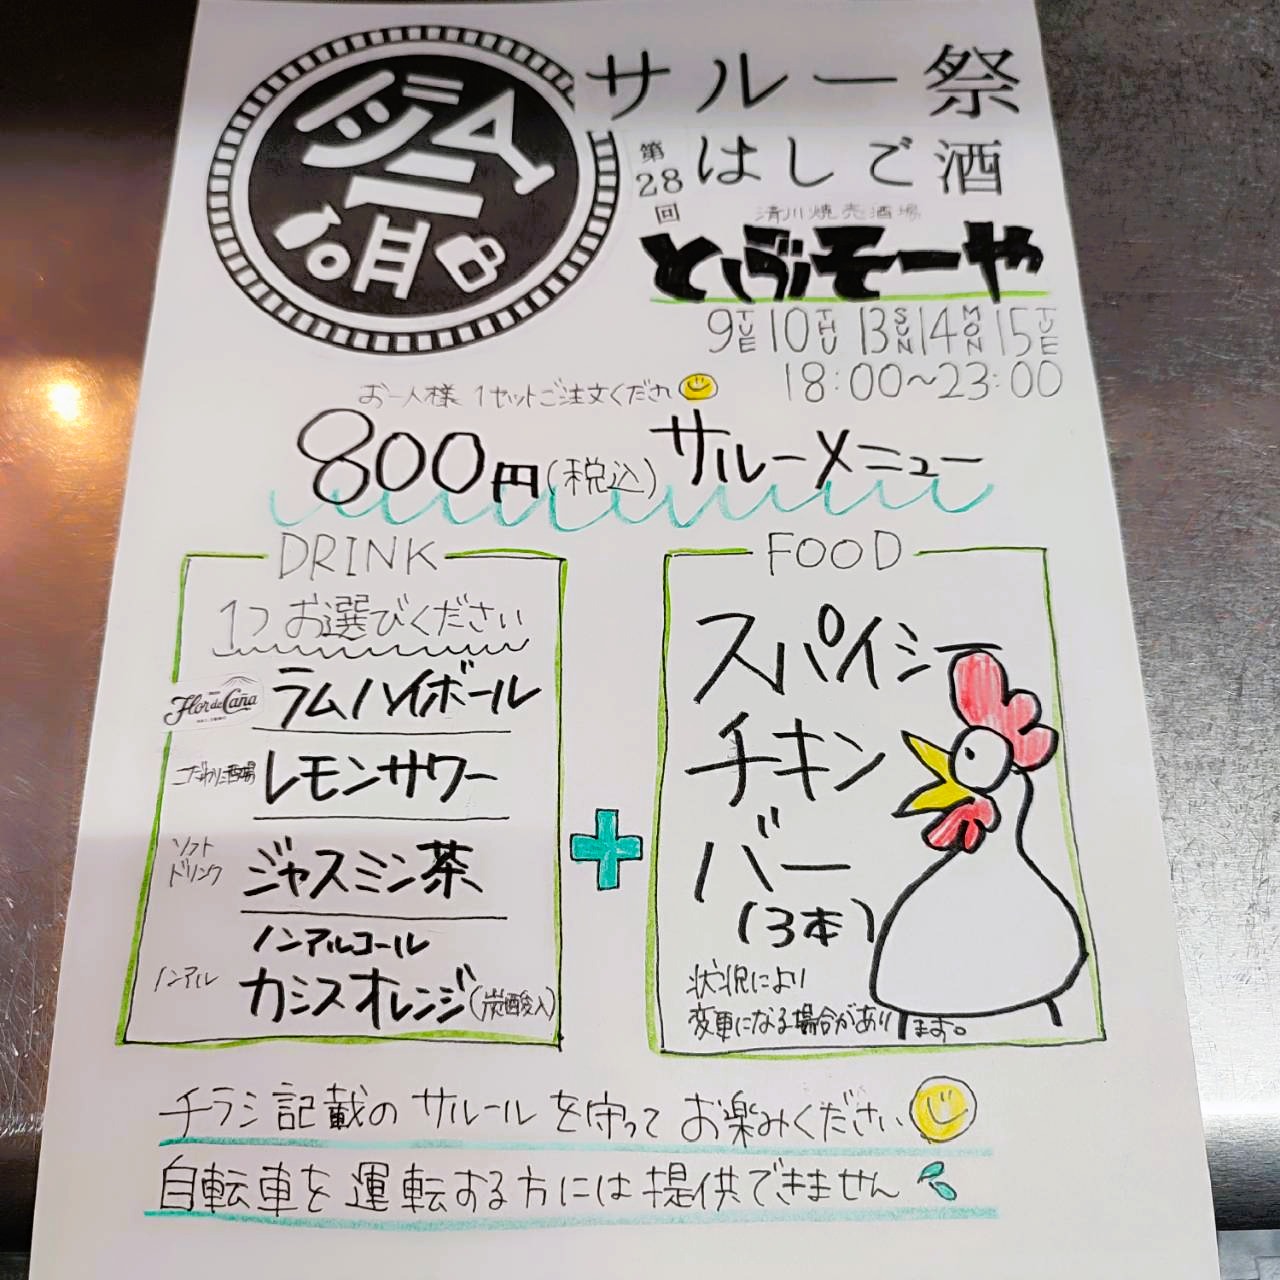 サルー祭
第28回
はしご酒
清川焼売酒場
とぶそーや
9 TUE 10 THU 13 SUN 14 MON 15 TUE
18:00～23:00
お一人様 1セットご注文くだされ
800円(税込)サルーメニュー
DRINK
1つお選びください
Flor de Caña
ラムハイボール
こだわり酒場
レモンサワー
ソフトドリンク
ジャスミン茶
ノンアル
ノンアルコール
カシスオレンジ(炭酸入)
+
FOOD
スパイシー
チキン
バー
(3本)
状況により
変更になる場合があります。
チラシ記載のサルールを守ってお楽みください
自転車を運転する方には提供できません